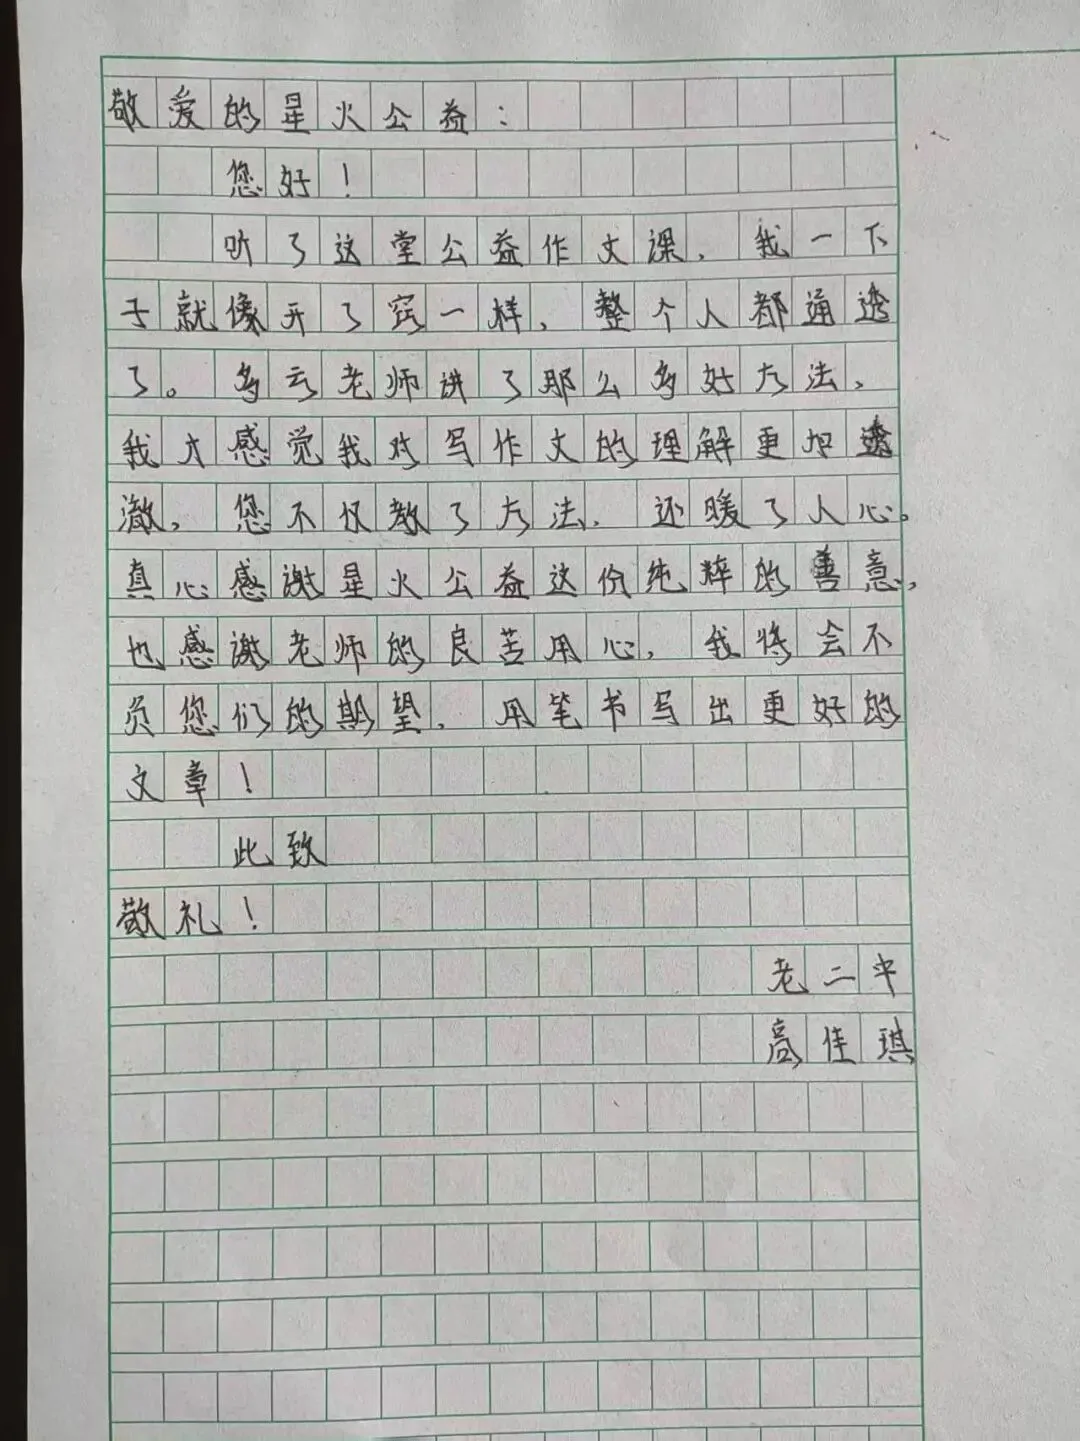 敬爱的星火公益：
您好！
听了这堂公益作文课，我一下
子就像开了窍一样，整个人都通透
了。多云老师讲了那么多好方法，
我才感觉我对写作文的理解更加透
澈，您不仅教了方法，还暖了人心。
真心感谢星火公益这份纯粹的善意，
也感谢老师的良苦用心，我将会不
负您们的期望，用笔书写出更好的
文章！
此致
敬礼！
老二中
高佳琪